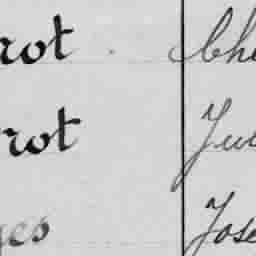 rot Che
rot Jul
ges Jose